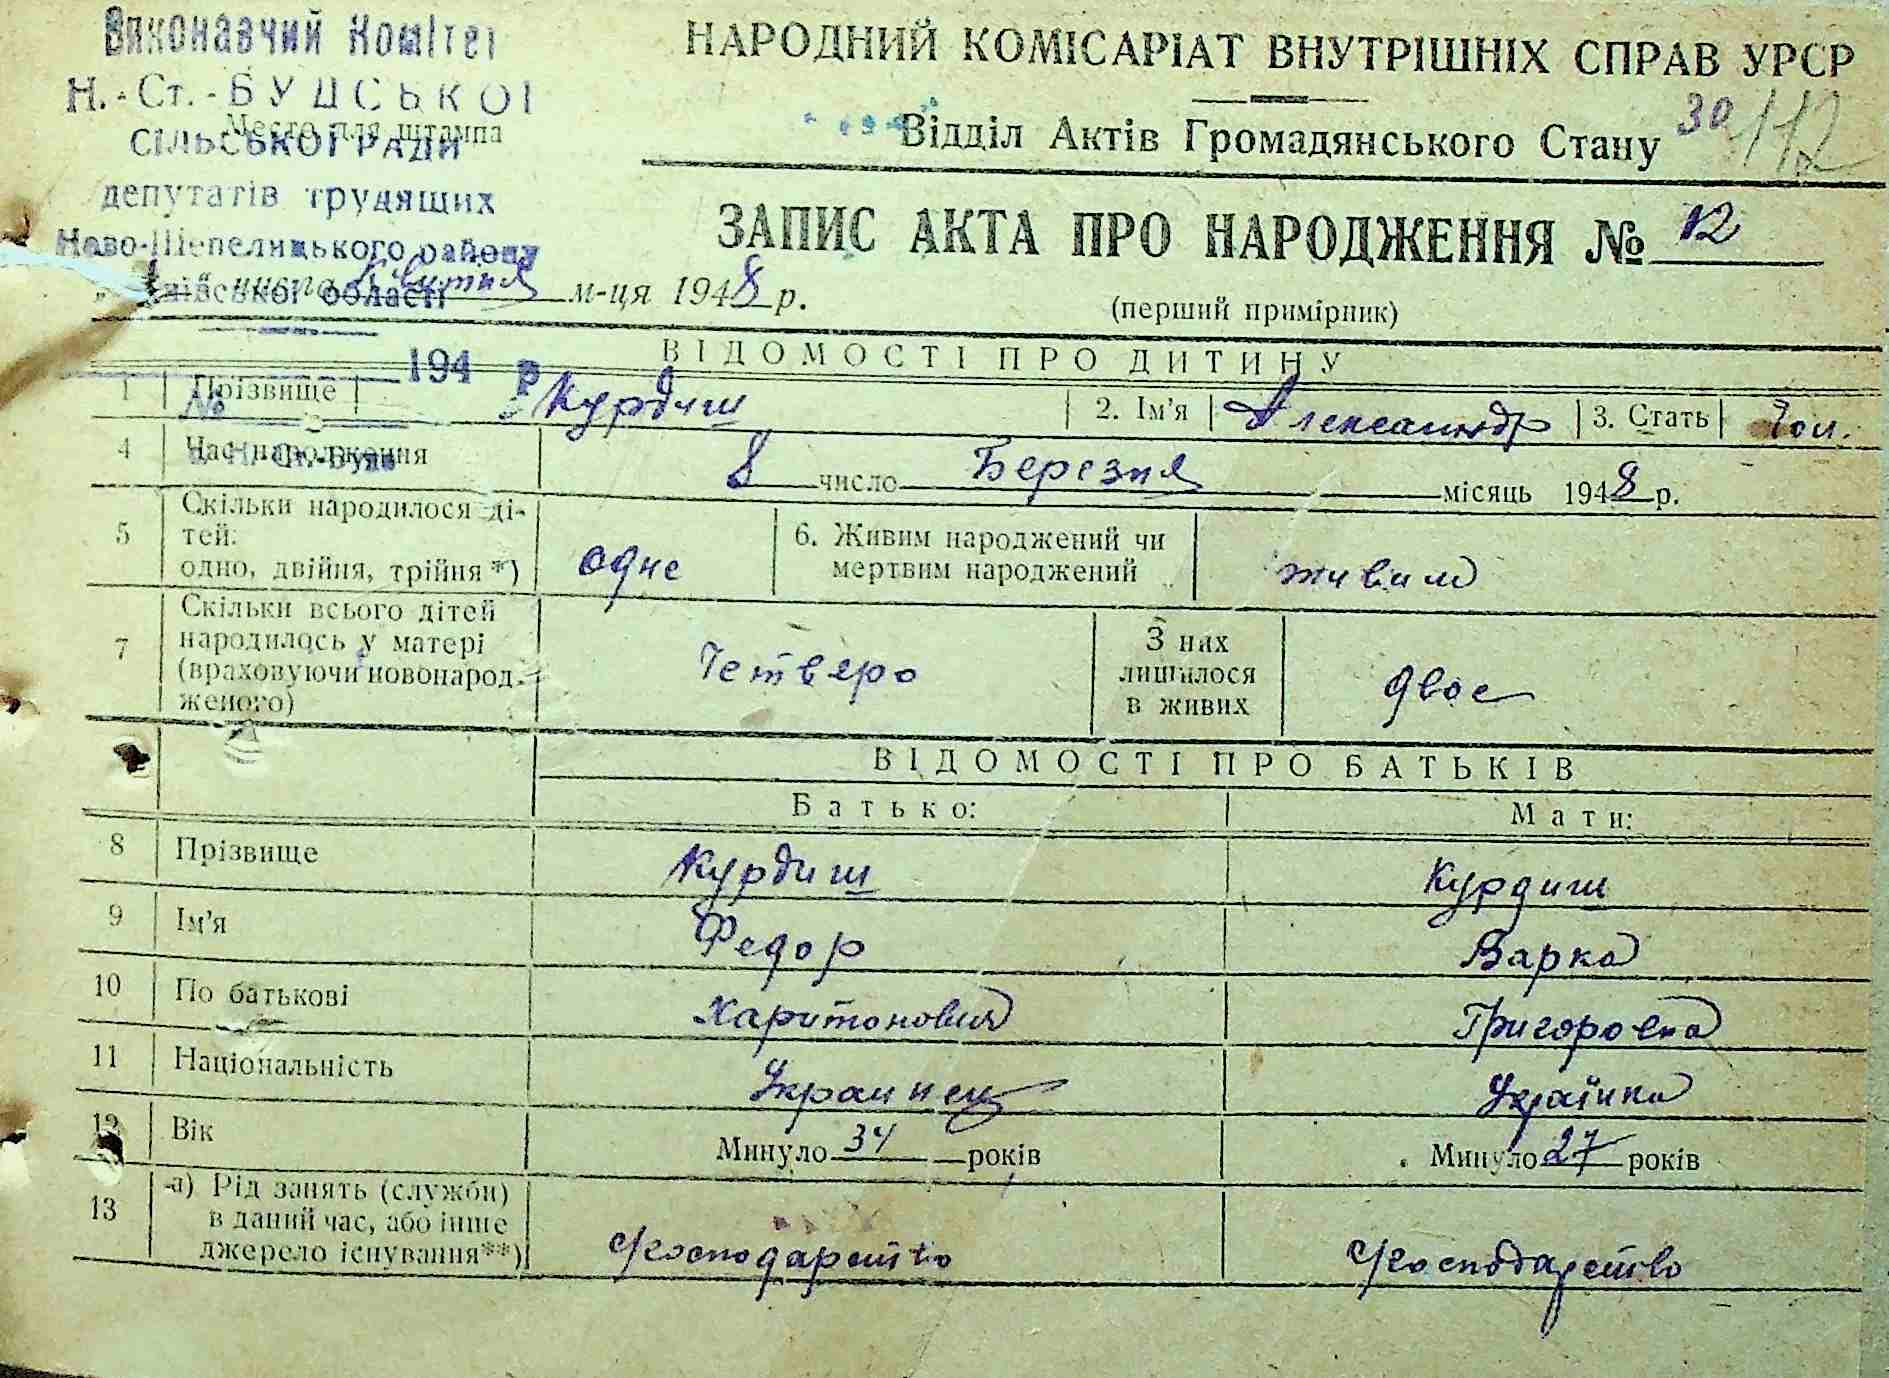 Виконавчий Комітет
Н.-Ст.-БУДСЬКОЇ
Место для штампа
СІЛЬСЬКОЇ РАДИ
депутатів трудящих
Ново-Шепелицького району
Київської області
194 р
№
с. Н. Ст.-Буда
НАРОДНИЙ КОМІСАРІАТ ВНУТРІШНІХ СПРАВ УРСР
Відділ Актів Громадянського Стану 30/112
ЗАПИС АКТА ПРО НАРОДЖЕННЯ № 12
числа Квитня м-ця 1948 р.
(перший примірник)
ВІДОМОСТІ ПРО ДИТИНУ
1 Прізвище Курдиш 2. Ім'я Александр 3. Стать Чол.
4 Час народження 8 число Березня місяць 1948 р.
5 Скільки народилося ді-
тей:
одно, двійня, трійня*) одне 6. Живим народжений чи
мертвим народжений живим
7 Скільки всього дітей
народилось у матері
(враховуючи новонарод-
женого) Четверо З них
лишилося
в живих двое
ВІДОМОСТІ ПРО БАТЬКІВ
Батько: Мати:
8 Прізвище Курдиш Курдиш
9 Ім'я Федор Варка
10 По батькові Харитонович Григоровна
11 Національність Украинец Українка
12 Вік Минуло 34 років Минуло 27 років
13 а) Рід занять (служби)
в даний час, або інше
джерело існування**) Господарство Господарство